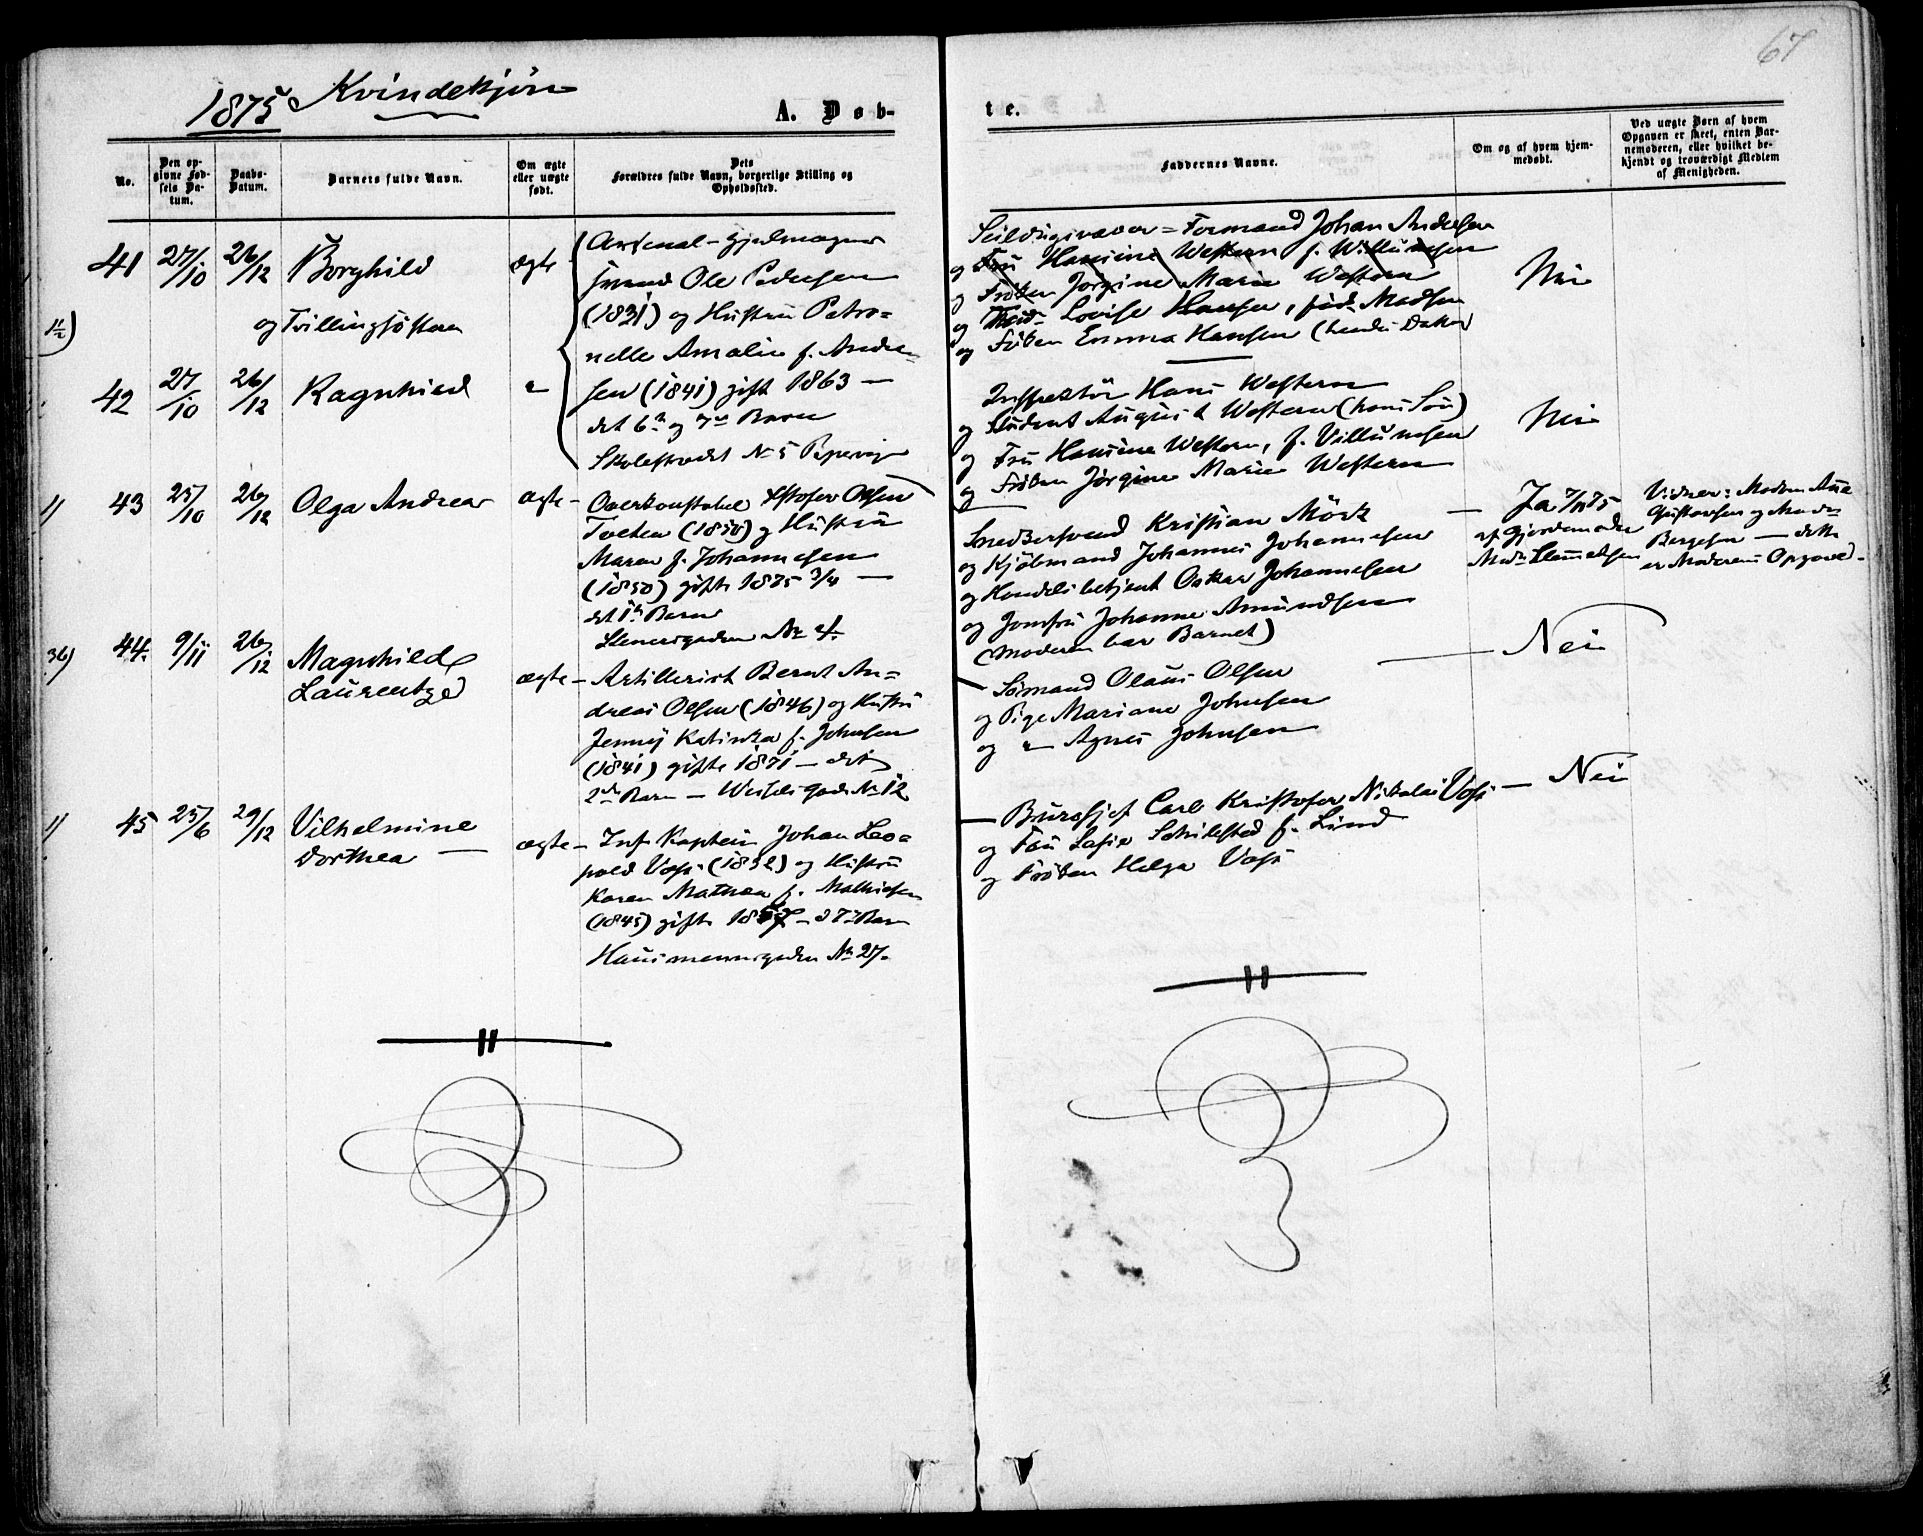 67
1875 Kvindekjøn
A. Døb-
te.
No.
Den op-
givne Fød-
sels Da-
tum.
Daabs-
Datum.
Barnets fulde Navn.
Om ægte
eller uægte
født.
Dets
Forældres fulde Navn, borgerlige Stilling og
Opholdssted.
Faddernes Navne.
Om og af hvem hjem-
medøbt.
Ved uægte Børn af hvem
Opgaven er skeet, enten Bar-
nemoderen, eller hvilket be-
kjendt og troværdigt Medlem
af Menigheden.
41 27/10 26/12 Borghild ægte
og Tvillingsøsteren
42 27/10 26/12 Ragnhild
Arsenal-Hjulmager
svend Ole Pedersen
(1831) og Hustru Petro=
nelle Amalie f. Andre
sen (1841) gift 1863 —
det 6te og 7de Barn
No 5 Pipervigen
Formand Johan Andersen
og Fru Hansine Western f. Willumsen
og Frøken Jørgine Marie Western
og Lovise Hansen, fød. Madsen
og Frøken Emma Hansen (hendes Datter)
Nei
Inspektør Hans Western
og Student August Western (hans Søn)
og Fru Hansine Western, f. Villumsen
og Frøken Jørgine Marie Western
Nei
1) 43 25/10 26/12 Olga Andrea ægte — Overkonstabel Kristofer Olsen
Tveten (1850) og Hustru
Maren f. Johannesen
(1850) gifte 1875 3/4 —
det 1ste Barn
Stenersgaden No 4.
Snedkersvend Kristian Mörk
og Kjøbmand Johannes Johannesen
og Handelsbetjent Oskar Johannesen
og Jomfru Johanne Amundsen
(Moderen bar Barnet)
Ja 7/11 75
af Gjordemoder
Vidner: Madam
Gustavsen og Mad.
Bergesen — dette
er Moderens Opgave.
36) 44. 9/11 26/12 Magnhild
Laurentze ægte — Artillerist Bernt An=
dreas Olsen (1846) og Hustru
Jenny Katinka f. Johnsen
(1841) gifte 1871 — det
2det Barn — Wessels Gade No 12
Sømand Olaus Olsen
og Pige Mariane Johnsen
og " Agnes Johnsen
Nei
1) 45 25/6 29/12 Vilhelmine
Dorthea — ægte — Inf. Kaptein Johan Leo=
pold Voss (1832) og Hustru
Karen Mathea f. Mathiesen
(1845) gifte
Hausmannsgaden No 27.
Carl Kristofer Nikolai Voss —
og Fru f. Lind
og Frøken Helga Voss
Nei